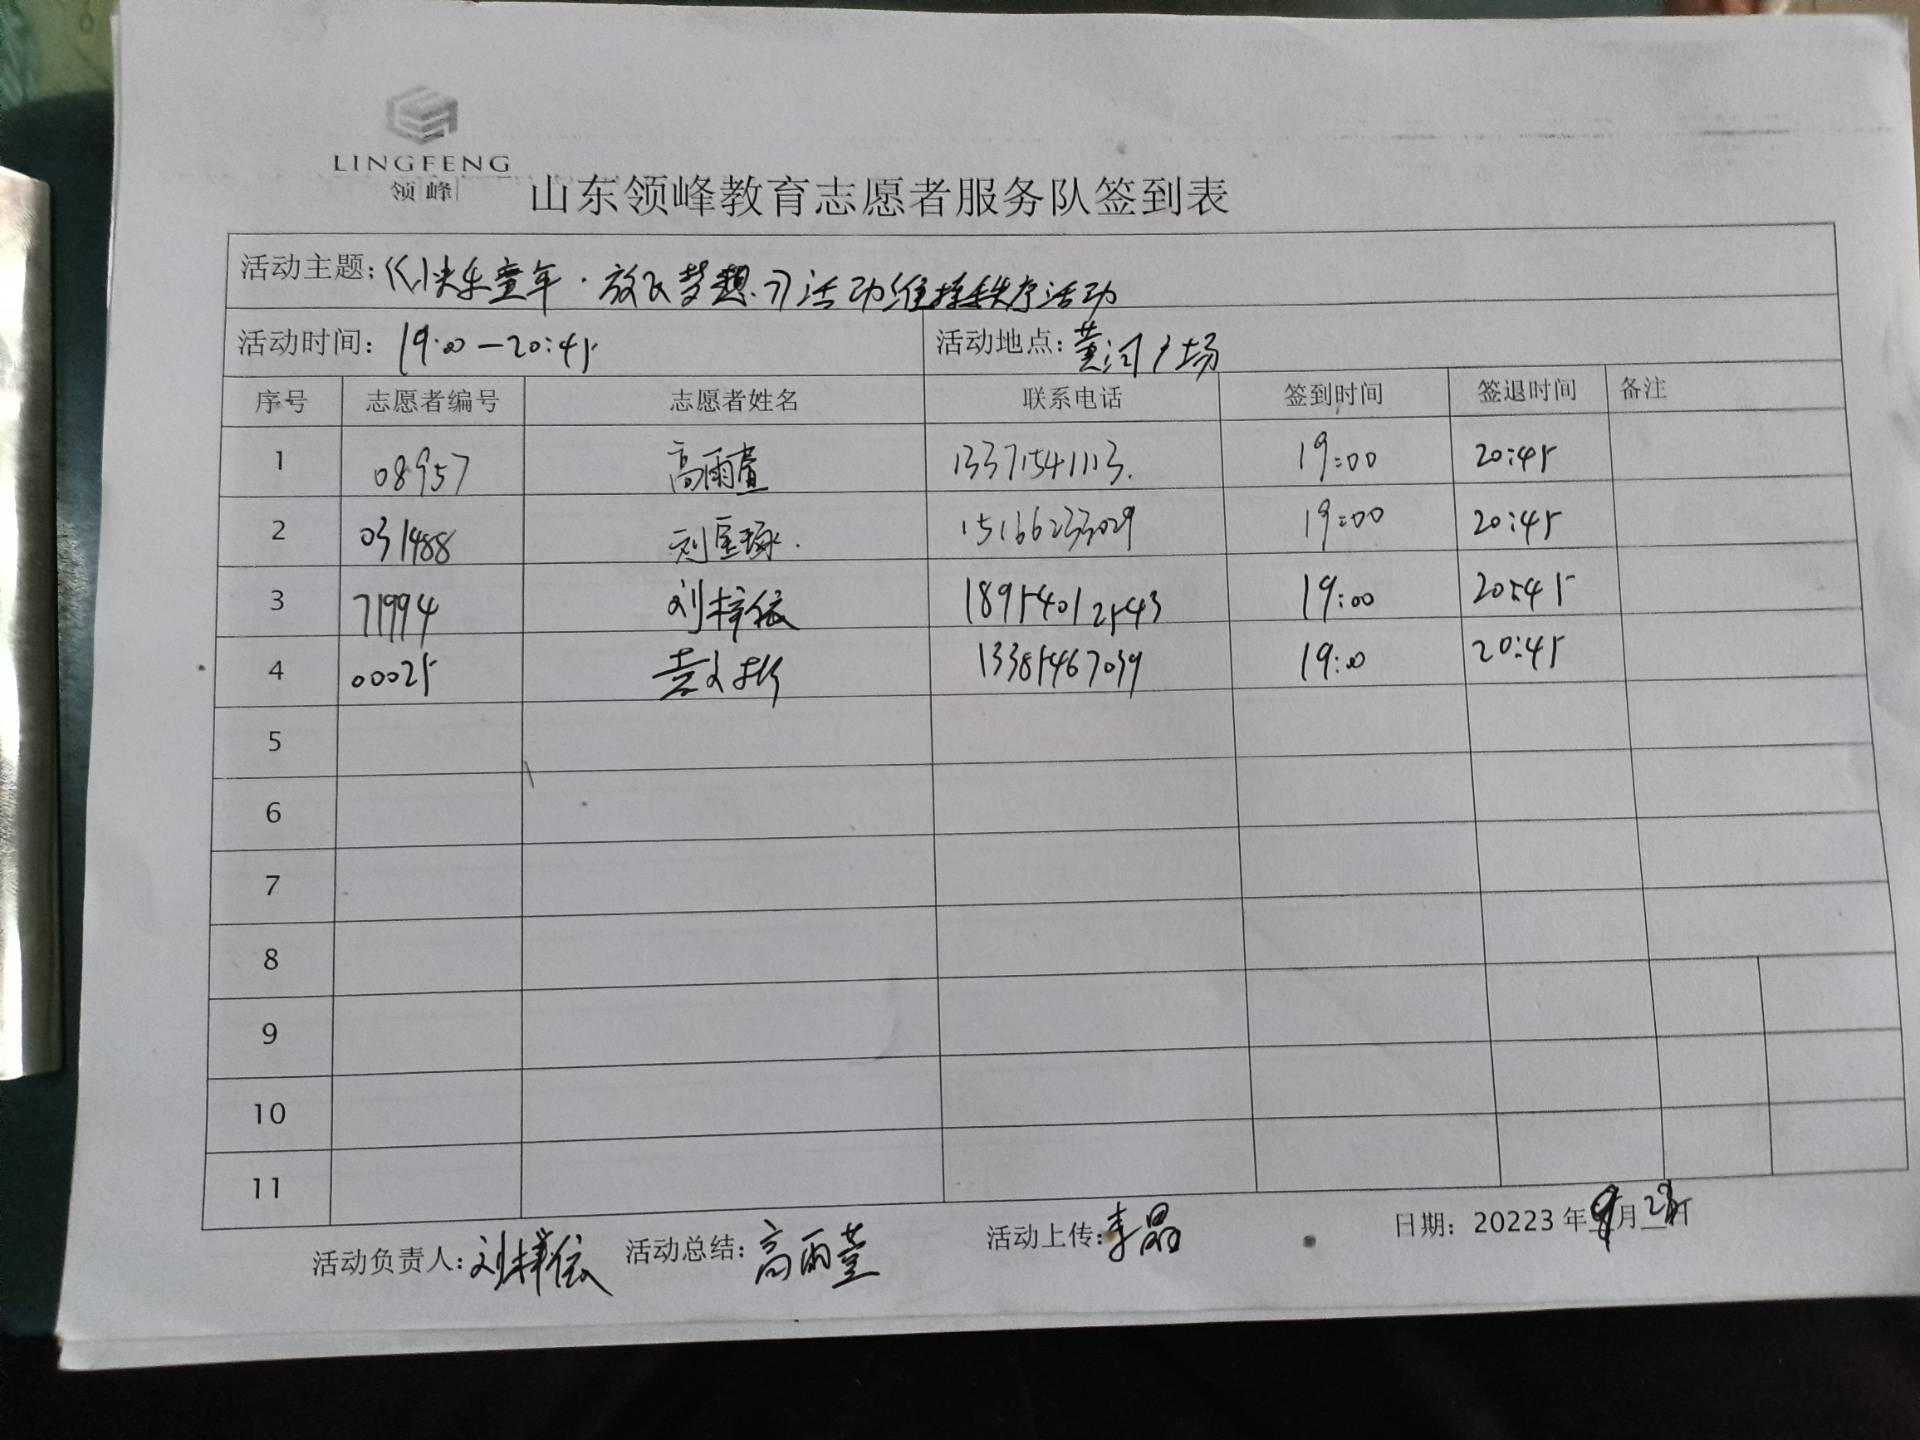 LINGFENG
领峰
山东领峰教育志愿者服务队签到表
活动主题：《快乐童年·放飞梦想》活动维持秩序活动
活动时间：19:00—20:45 活动地点：黄河广场
序号 志愿者编号 志愿者姓名 联系电话 签到时间 签退时间 备注
1 08957 高雨萱 13371541113. 19:00 20:45
2 031488 15166233029 19:00 20:45
3 71994 刘梓依 18954012543 19:00 20:45
4 00025 13385467039 19:00 20:45
5
6
7
8
9
10
11
活动负责人：刘梓依 活动总结：高雨萱 活动上传：李晶 日期：20223年 月